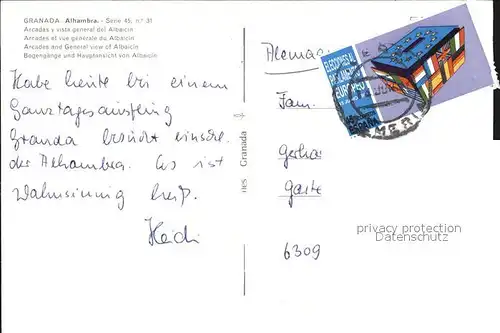 GRANADA Alhambra. - Serie 45, n.º 31
Arcadas y vista general del Albaicín
Arcades et vue générale du Albaicín
Arcades and General view of Albaicín
Bogengänge und Hauptansicht von Albaicín
Habe heute bei einem
Ganztagesausflug
Granda besucht einschl.
der Alhambra. Es ist
Wahnsinnig heiß.
Heidi
Granada
nes
Alema
ELECCIONES AL
PARLAMENTO
EUROPEO
ESPAÑA
Fam.
Gerha
Garte
6309
privacy protection
Datenschutz